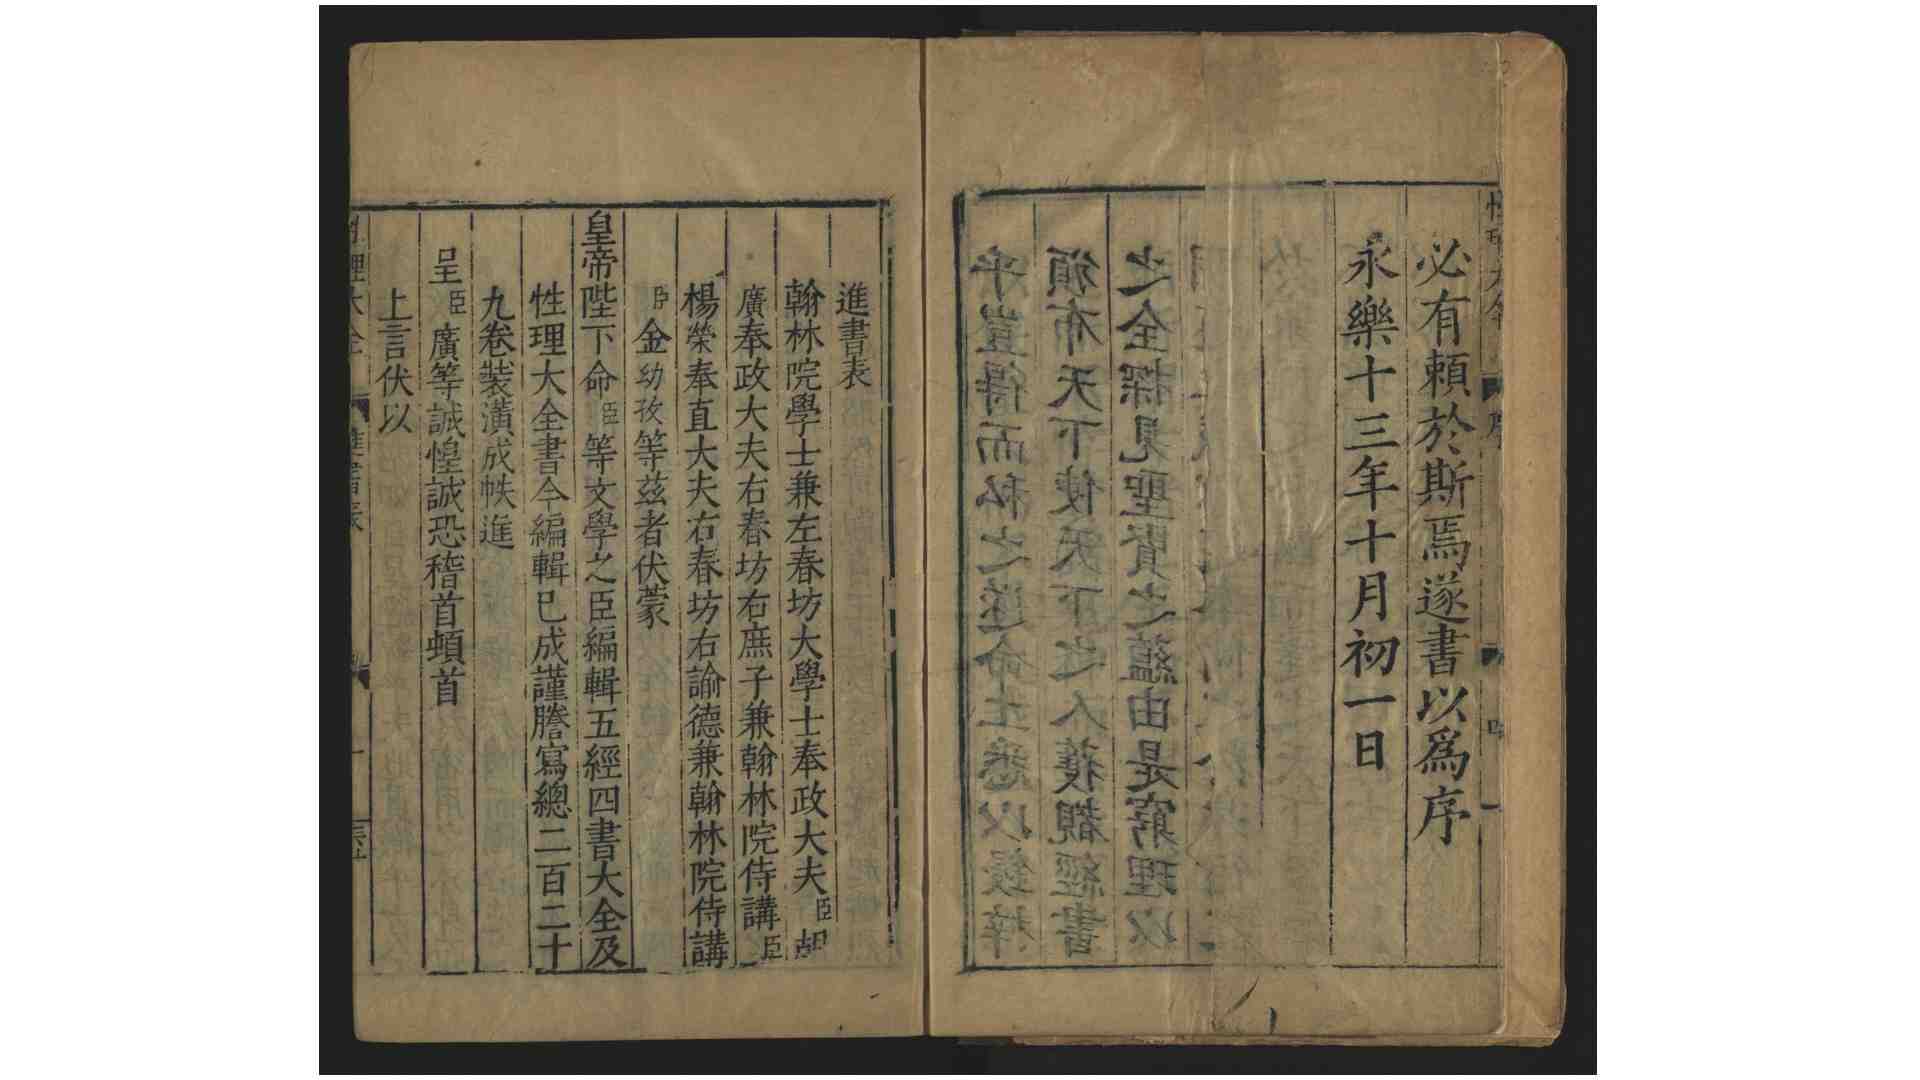 必有頼於斯焉遂書以爲序
永樂十三年十月初一日
之全探見聖賢之蘊由是窮理以
頒布天下使天下之人獲觀經書
乎豈得而私之遂命工悉以鋟梓
進書表
翰林院學士兼左春坊大學士奉政大夫臣胡
廣奉政大夫右春坊右庶子兼翰林院侍講臣
楊榮奉直大夫右春坊右諭德兼翰林院侍講
臣金幼孜等茲者伏蒙
皇帝陛下命臣等文學之臣編輯五經四書大全及
性理大全書今編輯已成謹謄寫總二百二十
九卷裝潢成帙進
呈臣廣等誠惶誠恐稽首頓首
上言伏以
性理大全 進書表 一